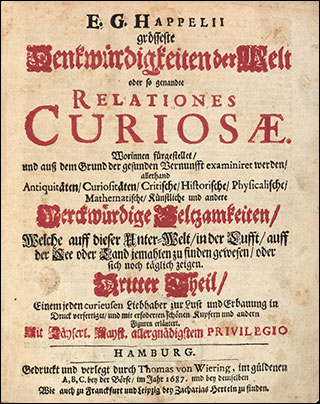 E. G. HAPPELII
gröſſeſte
Denkwürdigkeiten der Welt
oder ſo genandte
RELATIONES
CURIOSÆ.
Worinnen fürgeſtellet/
und auß dem Grund der geſunden Vernunfft examiniret werden/
allerhand
Antiquitäten/ Curioſitäten/ Critiſche/ Hiſtoriſche/ Phyſicaliſche/
Mathematiſche/ Künſtliche und andere
Merckwürdige Seltzamkeiten/
Welche auff dieſer Unter-Welt/ in der Lufft/ auff
der See oder Land jemahlen zu finden geweſen/ oder
ſich noch täglich zeigen.
Dritter Theil/
Einem jeden curieuſen Liebhaber zur Luſt und Erbauung in
Druck verfertiget/ und mit erfoderten ſchönen Kupfern und andern
Figuren erläutert.
Mit Käyſerl. Mayſt. allergnädigſtem PRIVILEGIO
HAMBURG.
Gedruckt und verlegt durch Thomas von Wiering, im güldenen
A, B, C, bey der Börſe/ im Jahr 1687. und bey demſelben
Wie auch zu Franckfurt und Leipzig bey Zacharias Herteln zu finden.